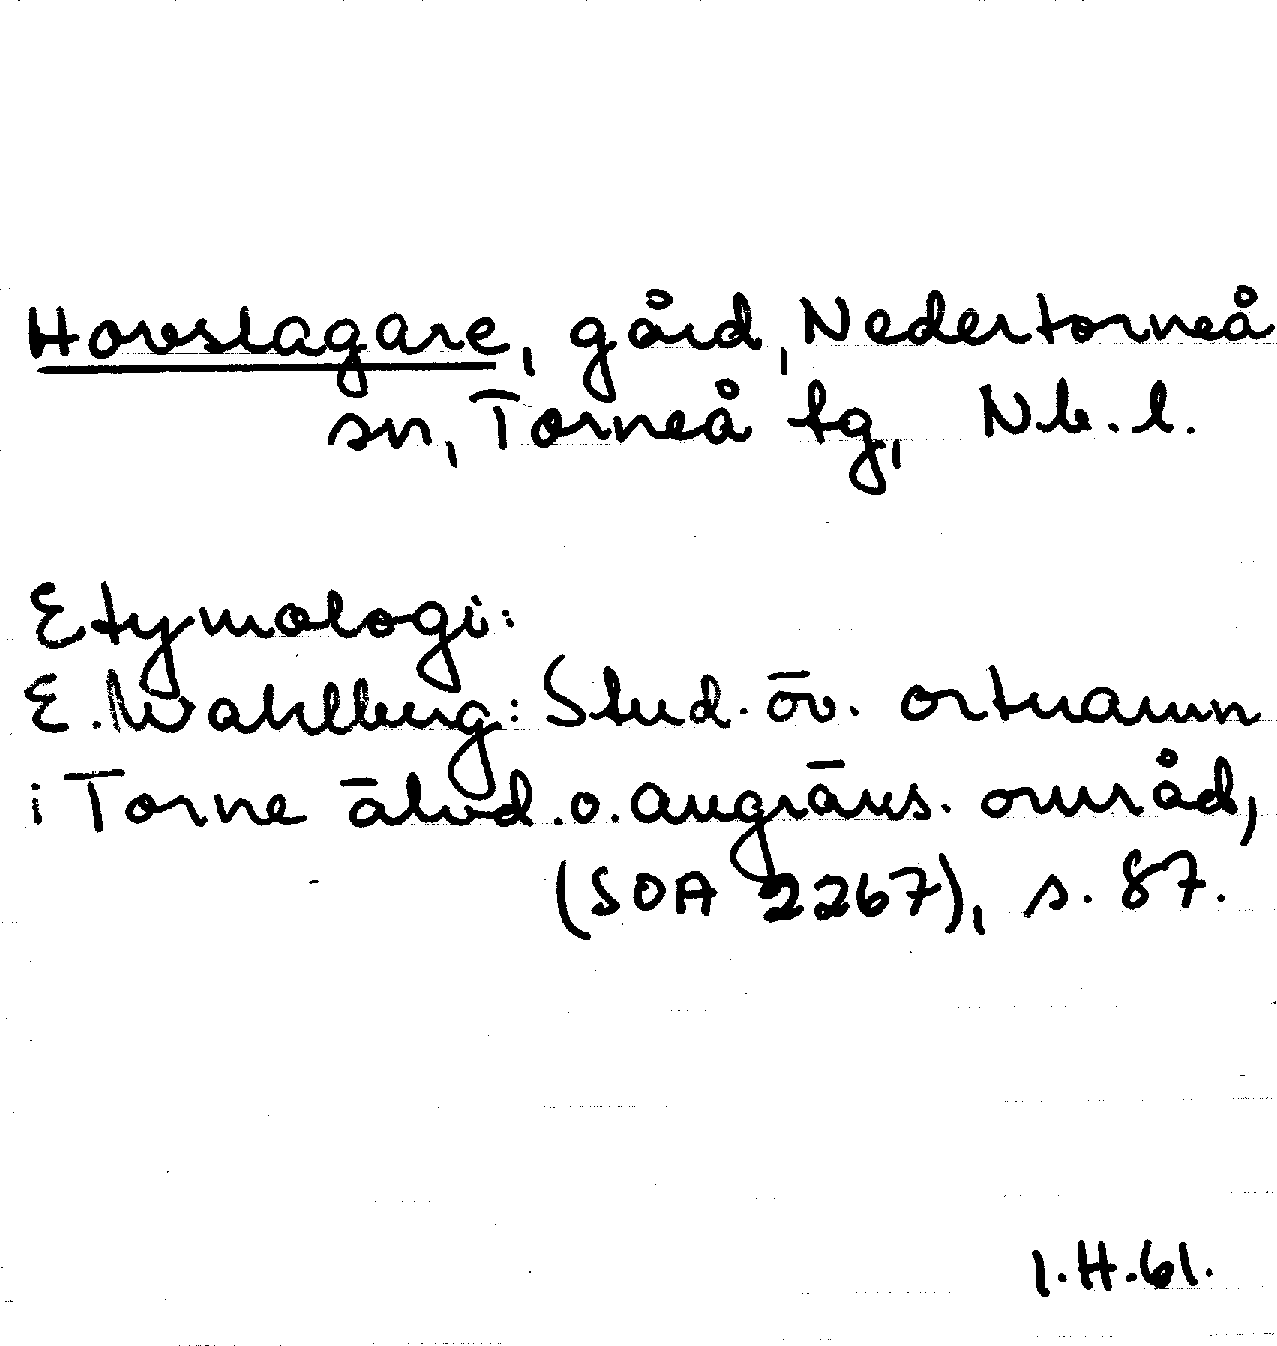 Hovslagare, gård, Nedertorneå
sn, Torneå tg, Nb. l.
Etymologi:
E. Wahlberg: Stud. öv. ortnamn
i Torne älvd. o. angräns. områd,
(SOA 2267), s. 87.
I.H.61.